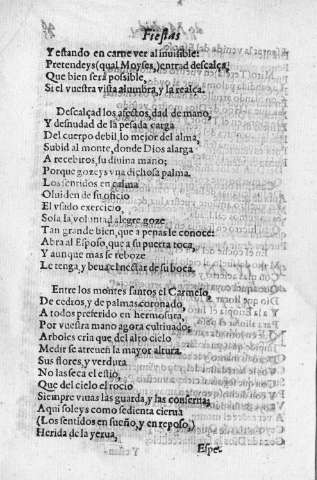 Fiestas
Y estando en carne ver al inuisible:
Pretendeys (qual Moyses,) entrad descalça,
Que bien será possible,
Si el vuestra vista alumbra, y la realça.
Descalçad los afectos, dad de mano,
Y desnudad de la pesada carga
Del cuerpo debil, lo mejor del alma,
Subid al monte, donde Dios alarga
A recebiros, su diuina mano;
Porque gozeys vna dichosa palma.
Los sentidos en calma
Oluiden de su oficio
El vsado exercicio,
Sola la voluntad alegre goze
Tan grande bien, que a penas le conoce:
Abra al Esposo, que a su puerta toca,
Y aunque mas se reboze
Le tenga, y beua el nectar de su boca.
Entre los montes santos el Carmelo,
De cedros, y de palmas coronado,
A todos preferido en hermosura,
Por vuestra mano agora cultiuado,
Arboles cria que del alto cielo
Medir se atreuen la mayor altura.
Sus flores, y verdura
No las seca el estio,
Que del cielo el rocio
Siempre viuas las guarda, y las conserua,
Aqui soleys como sedienta cierua
(Los sentidos en sueño, y en reposo,)
Herida de la yerua,
Espe-